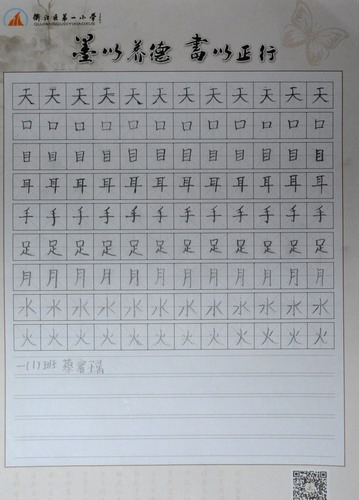 衢江区第一小学
墨以养德 書以正行
天天天天天天天天天天天天
口口口口口口口口口口口口
目目目目目目目目目目目目
耳耳耳耳耳耳耳耳耳耳耳耳
手手手手手手手手手手手手
足足足足足足足足足足足足
月月月月月月月月月月月月
水水水水水水水水水水水水
火火火火火火火火火火火火
一(1)班